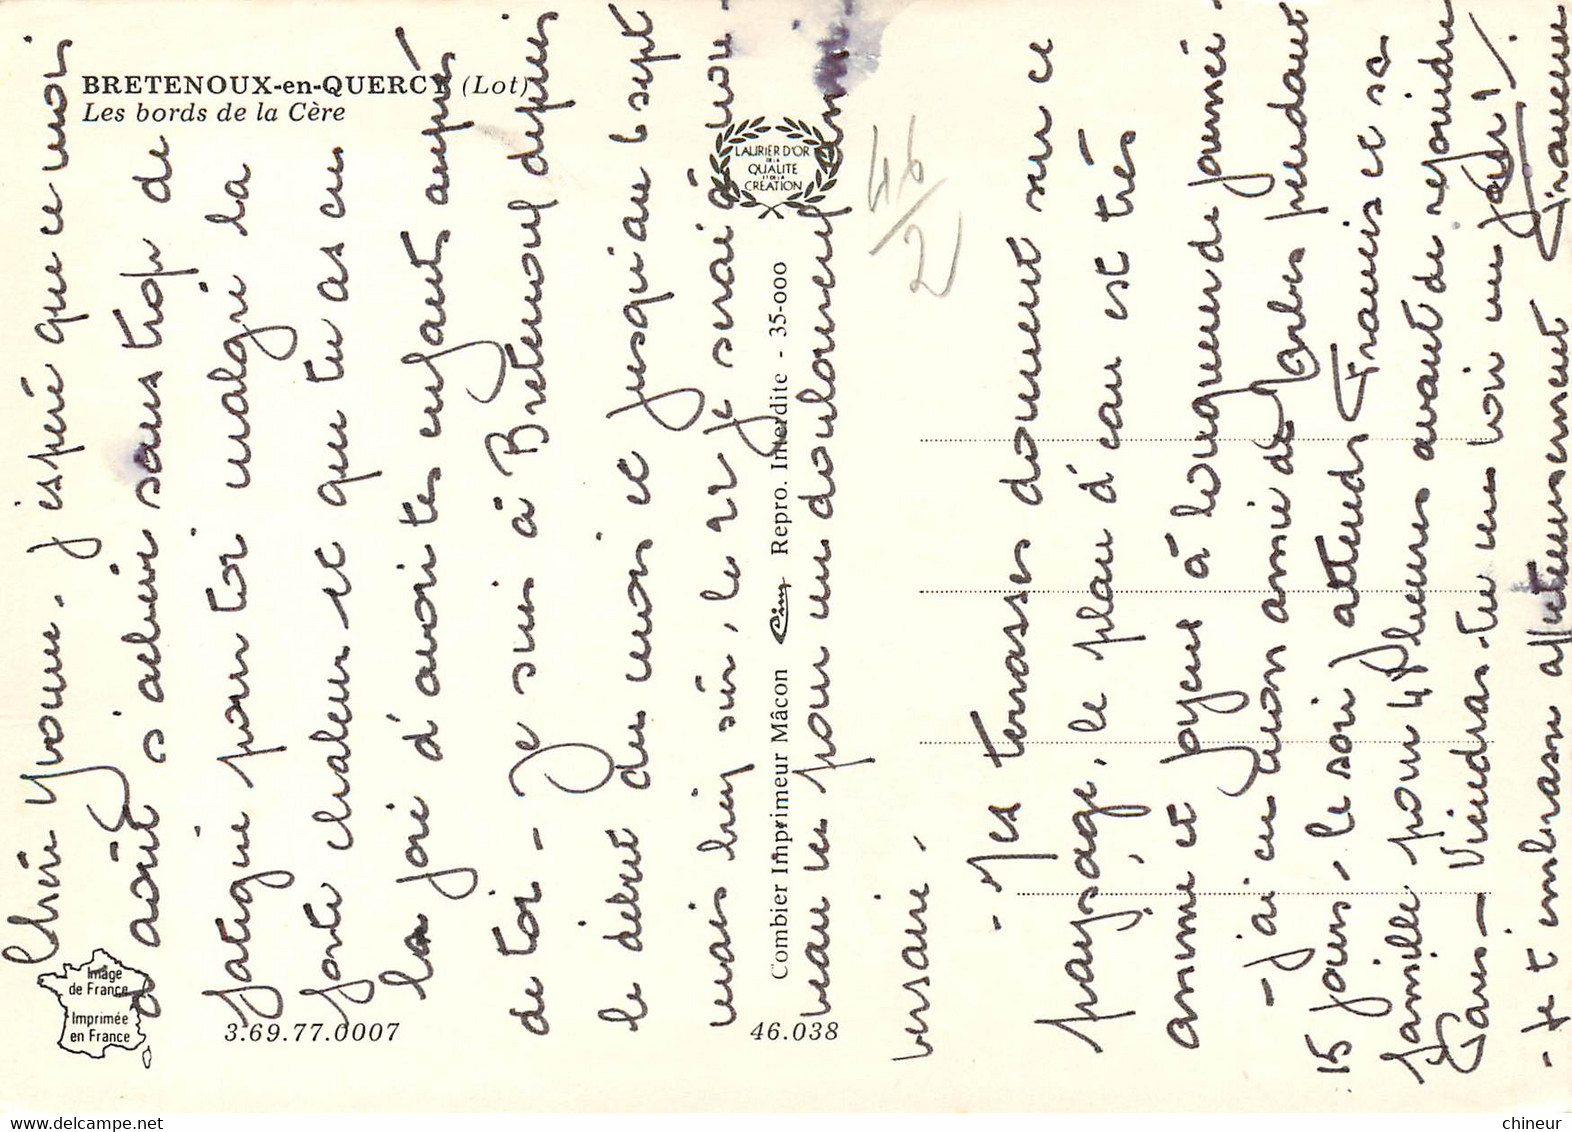 BRETENOUX-en-QUERCY (Lot)
Les bords de la Cère
LAURIER D'OR
DE LA
QUALITE
ET DE LA
CREATION
46/2
Image
de France
Imprimée
en France
3.69.77.0007
46.038
Combier Imprimeur Mâcon Cim Repro. Interdite - 35-000
Chère Yvonne. j'espère que ce mois
d'août s'achève sans trop de
fatigue pour toi malgré la
forte chaleur et que tu as eu
la joie d'avoir tes enfants auprès
de toi - Je suis à Bretenoux depuis
le début du mois et jusqu'au 6 sept
mais bien sûr, le 22 je serai à Mon-
teau pour un douloureux anni
versaire.
- Mes terrasses donnent sur ce
paysage, le plan d'eau est très
animé et joyeux à longueur de journée
- j'ai eu mon amie de pendant
15 jours, le soir j'attends Francis et sa
famille pour 4 heures avant de rejoindre
Paris - Viendras-tu me voir un jour!
- Je t'embrasse affectueusement Simone
chineur